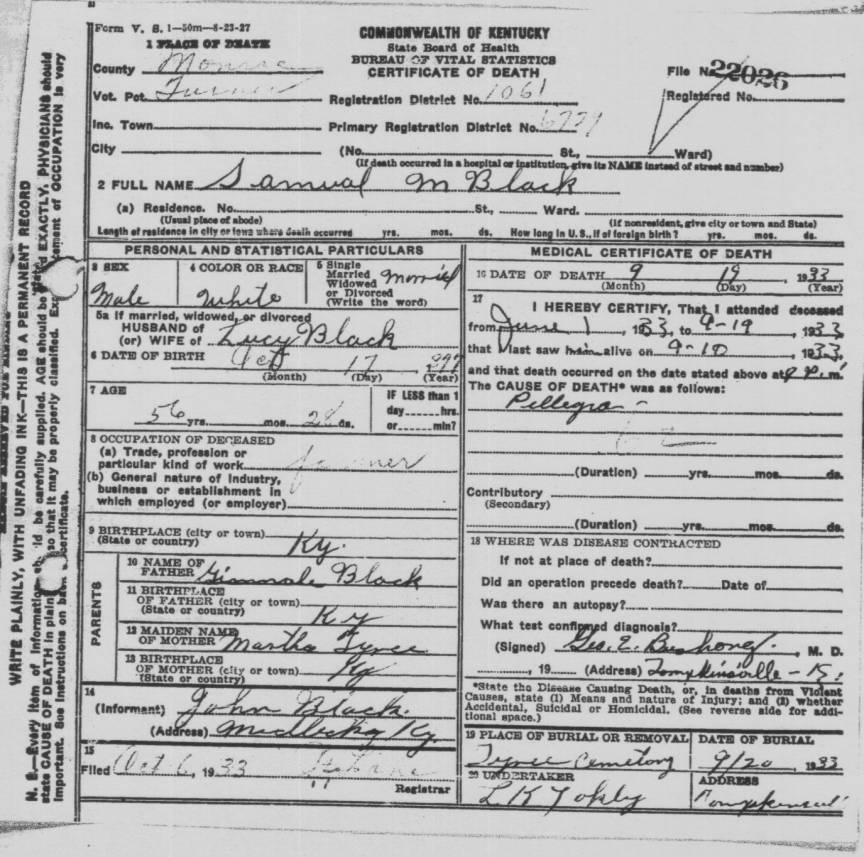 Form V. S. 1—50m—8-23-27
1 PLACE OF DEATH
COMMONWEALTH OF KENTUCKY
State Board of Health
BUREAU OF VITAL STATISTICS
CERTIFICATE OF DEATH
County Monroe
File No. 22026
Vot. Pct. Turner
Registration District No. 1061
Registered No.
Inc. Town
Primary Registration District No.
City (No. St., Ward)
(If death occurred in a hospital or institution, give its NAME instead of street and number)
2 FULL NAME Samual M Black
(a) Residence. No. St., Ward.
(Usual place of abode) (If nonresident, give city or town and State)
Length of residence in city or town where death occurred yrs. mos. ds. How long in U. S., if of foreign birth? yrs. mos. ds.
PERSONAL AND STATISTICAL PARTICULARS
3 SEX Male
4 COLOR OR RACE White
5 Single
Married
Widowed
or Divorced
(Write the word) Married
5a If married, widowed, or divorced
HUSBAND of
(or) WIFE of Lucy Black
6 DATE OF BIRTH Oct 17
(Month) (Day) (Year)
7 AGE
56 yrs. mos. ds.
IF LESS than 1
day hrs.
or min?
8 OCCUPATION OF DECEASED
(a) Trade, profession or
particular kind of work farmer
(b) General nature of industry,
business or establishment in
which employed (or employer)
9 BIRTHPLACE (city or town)
(State or country) Ky.
PARENTS
10 NAME OF
FATHER Black
11 BIRTHPLACE
OF FATHER (city or town)
(State or country) Ky
12 MAIDEN NAME
OF MOTHER Martha Tyree
13 BIRTHPLACE
OF MOTHER (city or town)
(State or country) Ky
14
(Informant) John Black.
(Address) Ky.
15
Filed Oct 6, 1933
Registrar
MEDICAL CERTIFICATE OF DEATH
16 DATE OF DEATH 9 19 1933
(Month) (Day) (Year)
17
I HEREBY CERTIFY, That I attended deceased
from June 1, 1933, to 9-19, 1933,
that I last saw him alive on 9-10, 1933,
and that death occurred on the date stated above at P.m.
The CAUSE OF DEATH* was as follows:
Pellegra -
(Duration) yrs. mos. ds.
Contributory
(Secondary)
(Duration) yrs. mos. ds.
18 WHERE WAS DISEASE CONTRACTED
If not at place of death?
Did an operation precede death? Date of
Was there an autopsy?
What test confirmed diagnosis?
(Signed) Geo. E. Bushong, M. D.
, 19 (Address) Tompkinsville - K.
*State the Disease Causing Death, or, in deaths from Violent
Causes, state (1) Means and nature of Injury; and (2) whether
Accidental, Suicidal or Homicidal. (See reverse side for addi-
tional space.)
19 PLACE OF BURIAL OR REMOVAL
Tyree Cemetory
DATE OF BURIAL
9/20, 1933
20 UNDERTAKER
L. K
ADDRESS
WRITE PLAINLY, WITH UNFADING INK—THIS IS A PERMANENT RECORD